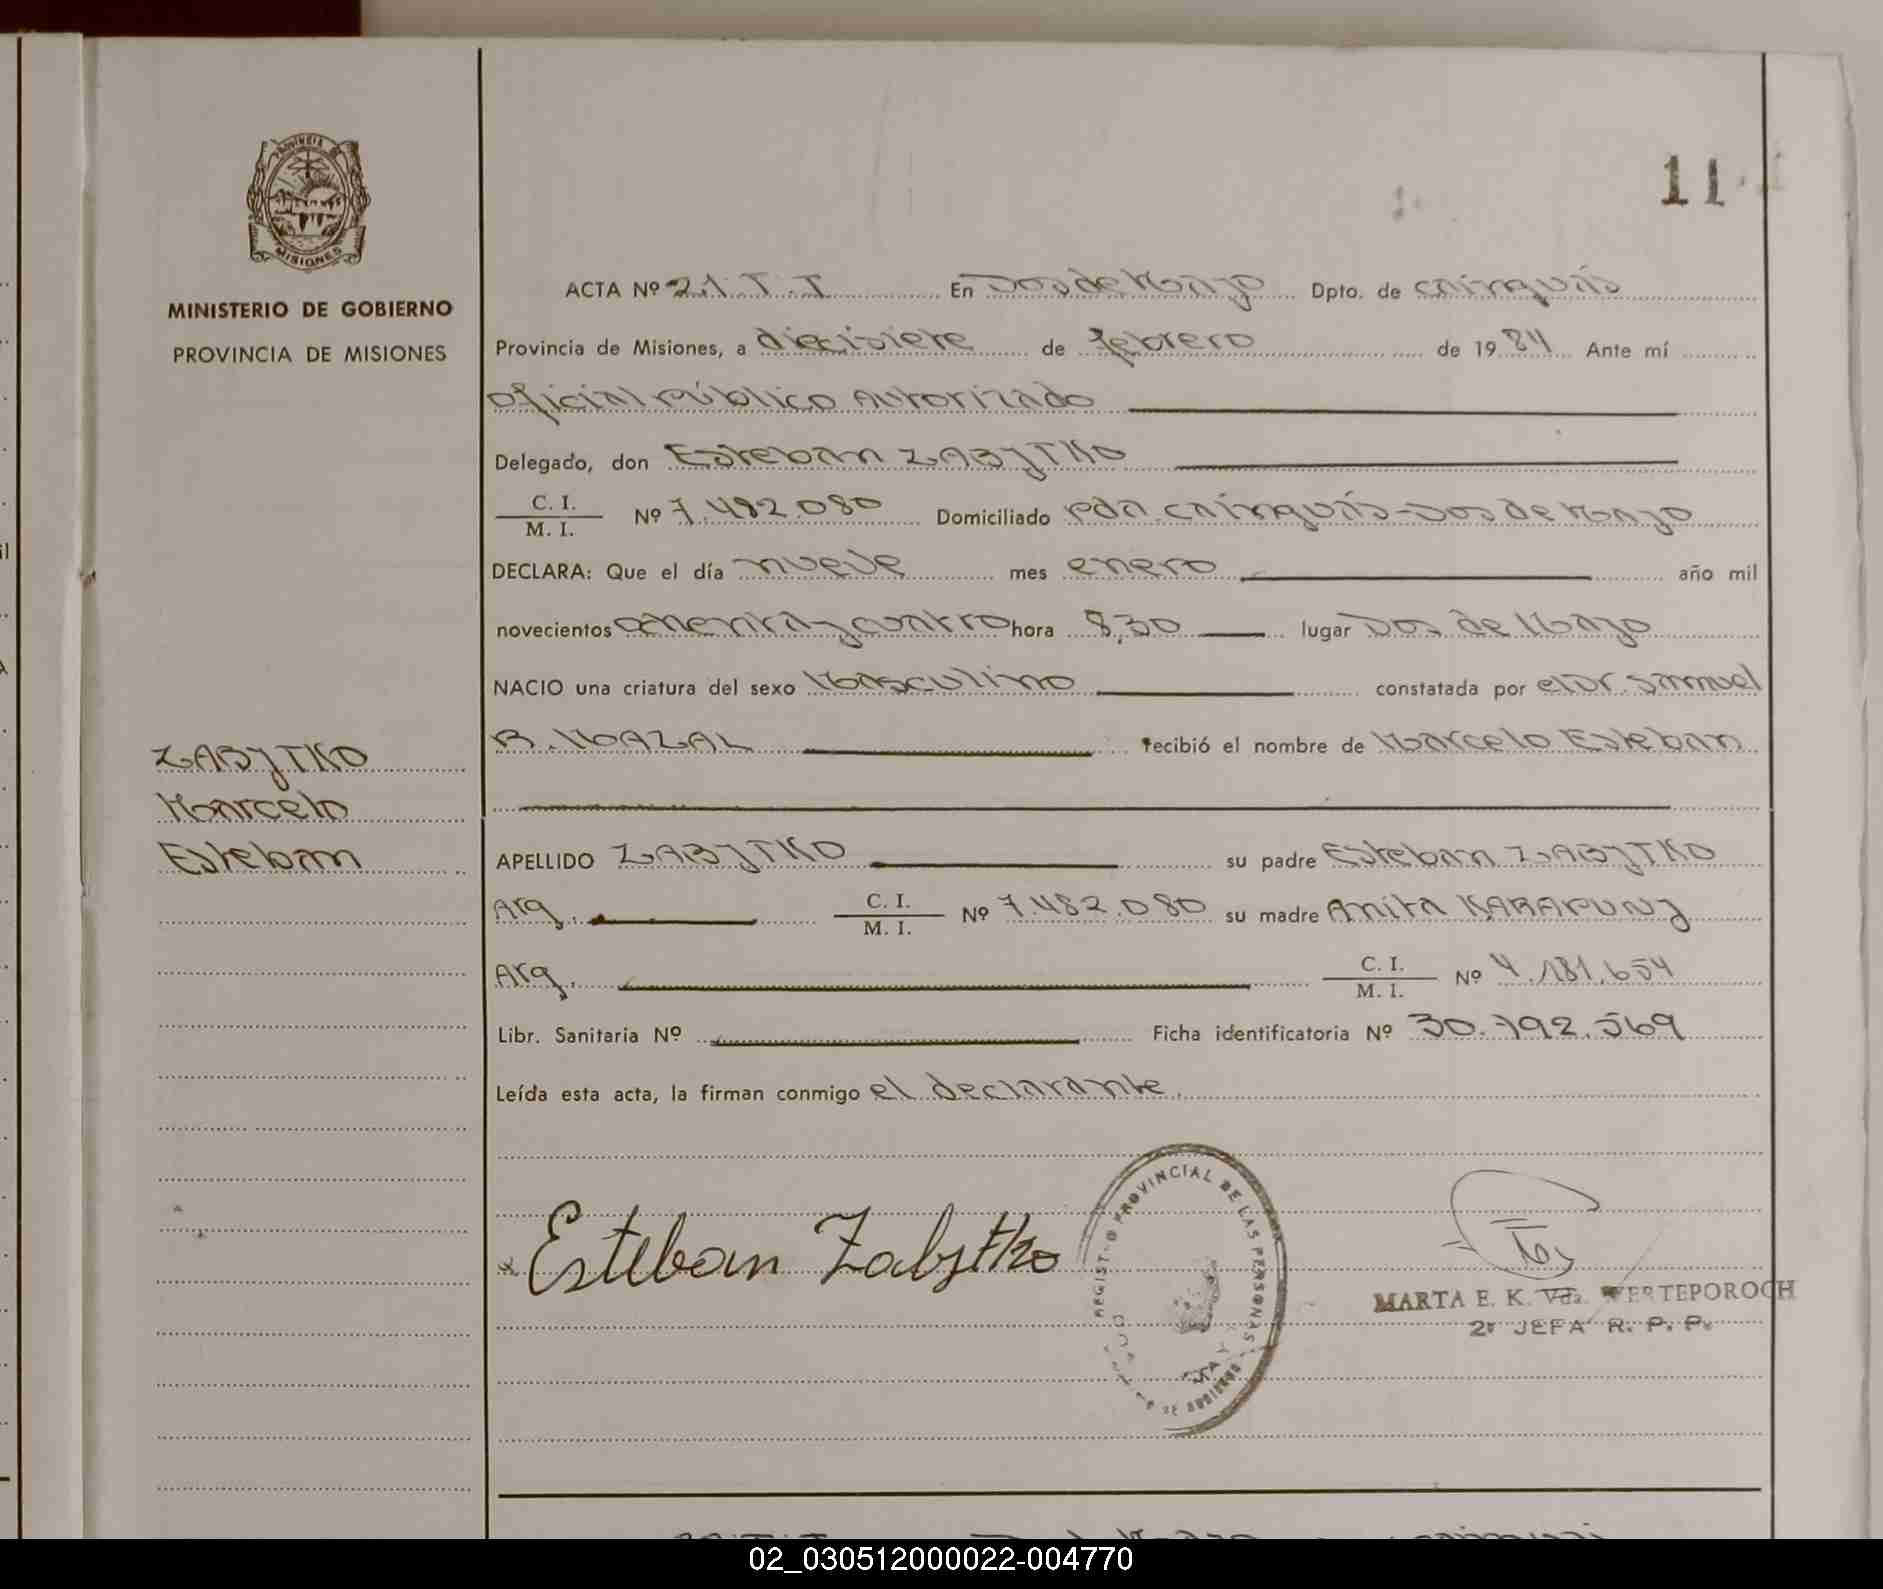 11
PROVINCIA DE
MISIONES
MINISTERIO DE GOBIERNO
PROVINCIA DE MISIONES
ZABYTKO
Marcelo
Esteban
ACTA Nº 21. T. I En Dos de Mayo Dpto. de Cainguás
Provincia de Misiones, a diecisiete de febrero de 1984 Ante mí
Oficial Público Autorizado
Delegado, don Esteban ZABYTKO
C. I.
M. I. Nº 7.482.080 Domiciliado Pda. Cainguás-Dos de Mayo
DECLARA: Que el día nueve mes enero año mil
novecientos ochenta y cuatro hora 8,30 lugar Dos de Mayo
NACIO una criatura del sexo Masculino constatada por el Dr. Samuel
B. MAZAL recibió el nombre de Marcelo Esteban
APELLIDO ZABYTKO su padre Esteban ZABYTKO
Arg. C. I.
M. I. Nº 7.482.080 su madre Anita KARAPUNY
Arg. C. I.
M. I. Nº 4.181.654
Libr. Sanitaria Nº Ficha identificatoria Nº 30.792.569
Leída esta acta, la firman conmigo el declarante.
Esteban Zabytko
REGISTRO PROVINCIAL DE LAS PERSONAS
MARTA E. K. Vda. WERTEPOROCH
2ª JEFA R. P. P.
02_030512000022-004770